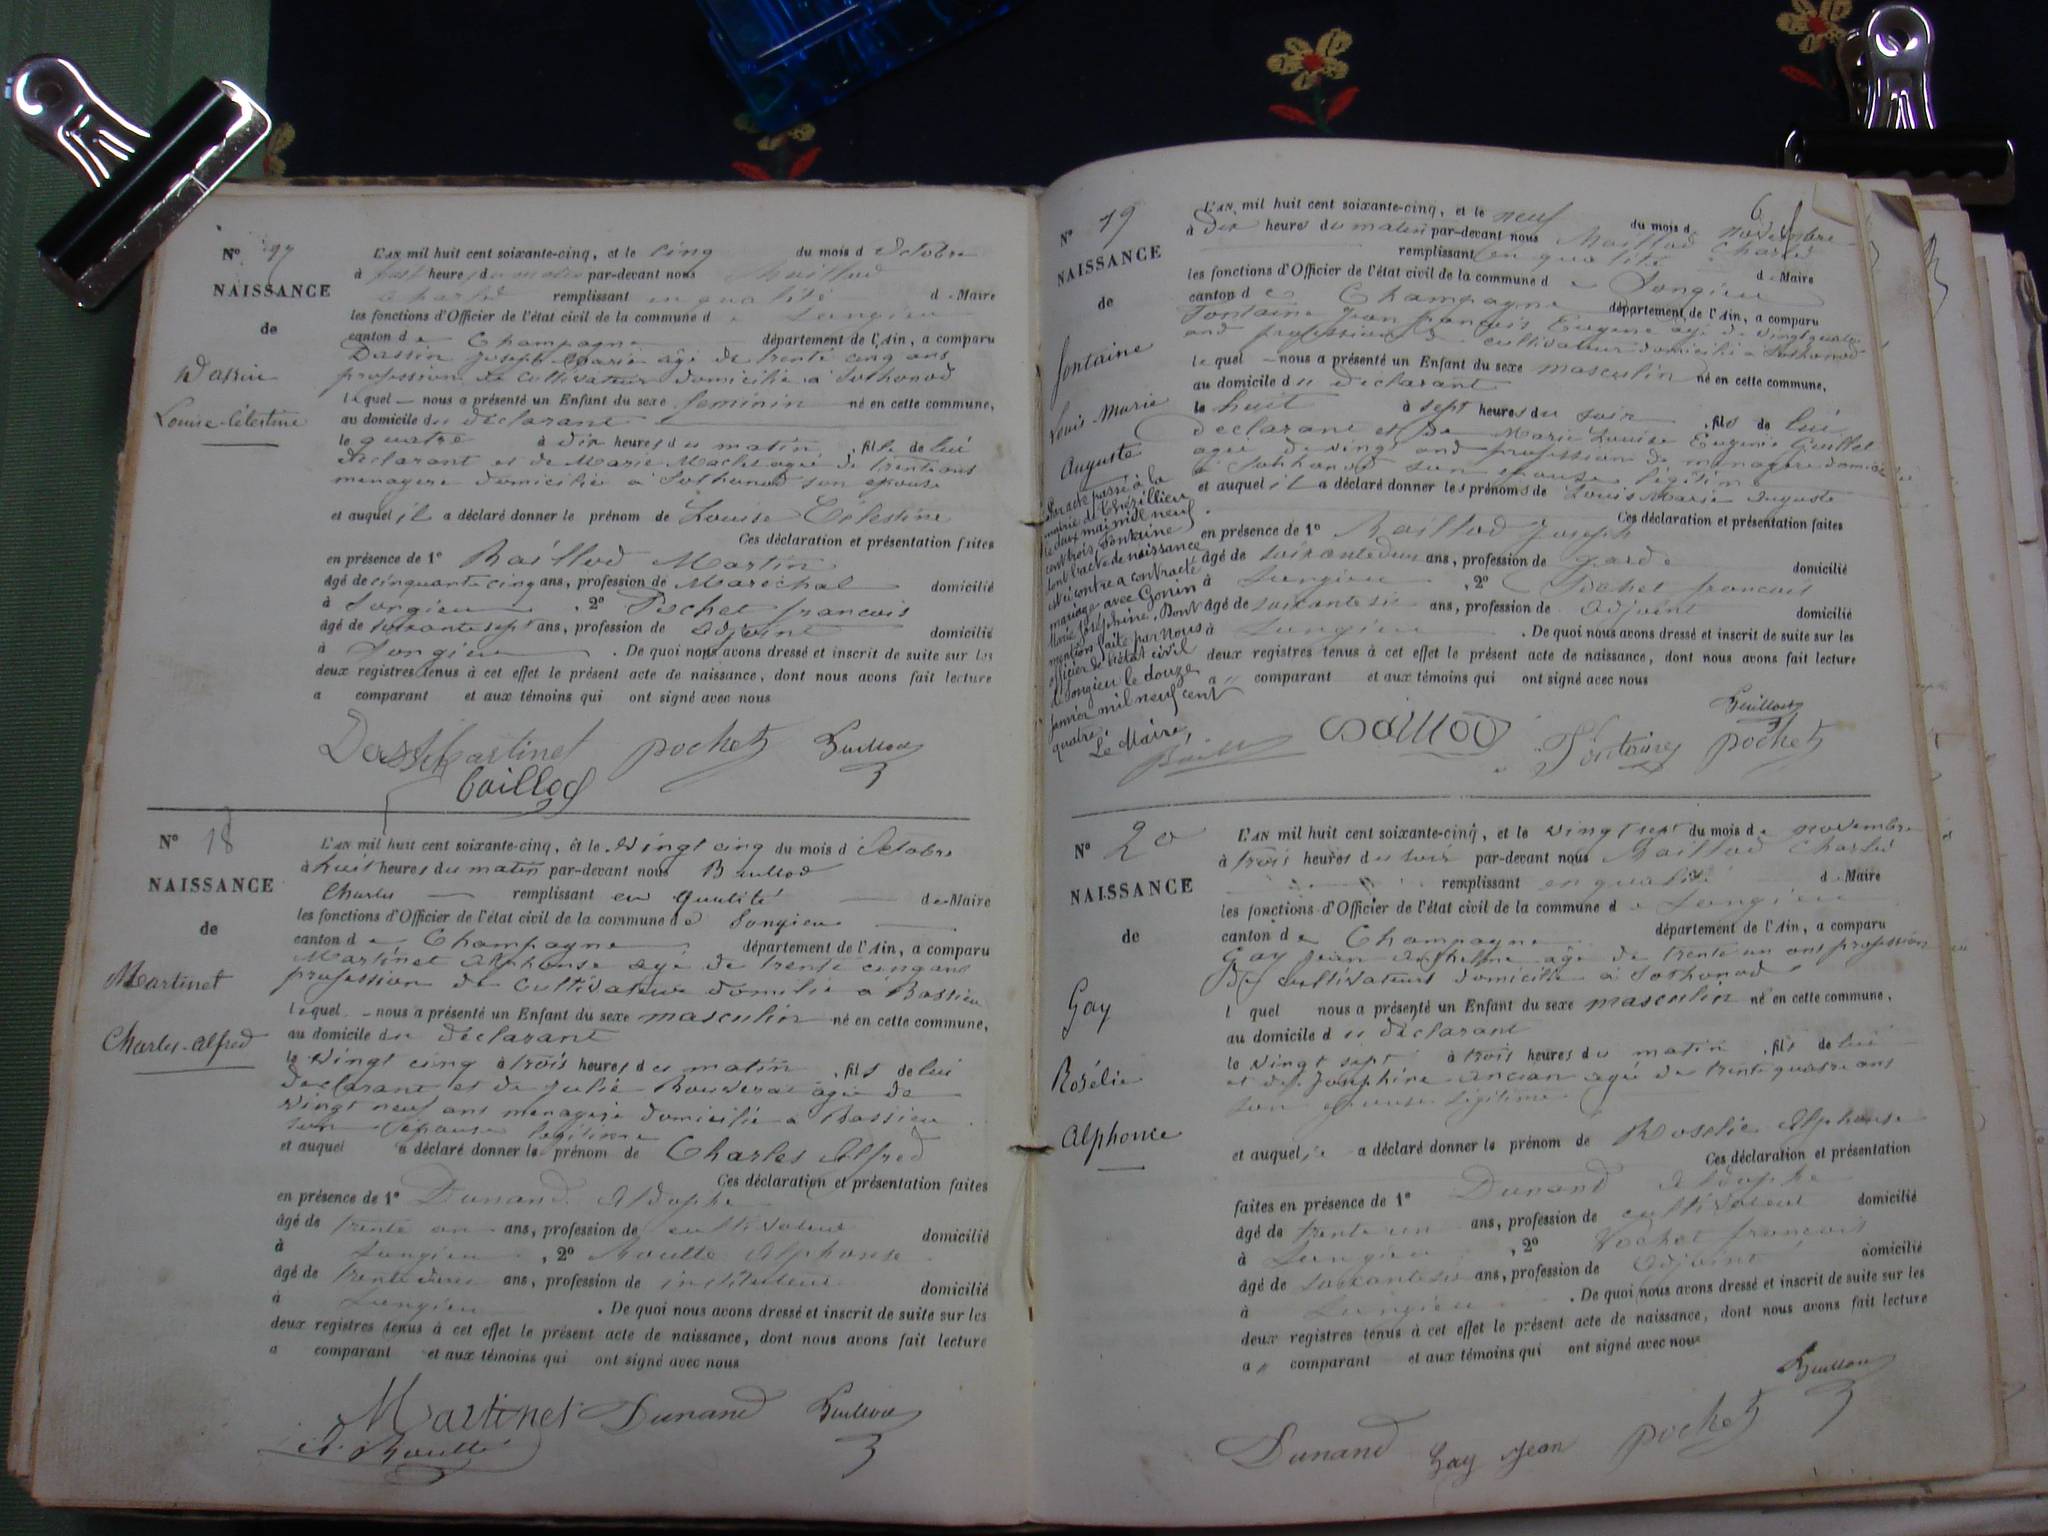 Nº 17
NAISSANCE
de
Dassin
Louise-Célestine
L'AN mil huit cent soixante-cinq, et le cinq du mois d Octobre
à heures du matin par-devant nous Baillod
Charles remplissant en qualité d Maire
les fonctions d'Officier de l'état civil de la commune d e Songieu
canton d e Champagne département de l'Ain, a comparu
Dassin Joseph Marie âgé de trente cinq ans
profession de cultivateur domicilié à Sothonod
lequel nous a présenté un Enfant du sexe feminin né en cette commune,
au domicile du déclarant
le quatre à dix heures du matin, fille de lui
déclarant et de Marie agée de trente ans
menagere domiciliée à Sothonod son epouse
et auquel il a déclaré donner le prénom de Louise Célestine
Ces déclaration et présentation faites
en présence de 1º Baillod Martin
âgé de cinquante cinq ans, profession de Maréchal domicilié
à Songieu, 2º Pochet francois
âgé de soixante sept ans, profession de adjoint domicilié
à Songieu. De quoi nous avons dressé et inscrit de suite sur les
deux registres tenus à cet effet le présent acte de naissance, dont nous avons fait lecture
a comparant et aux témoins qui ont signé avec nous
Martinet pochet Baillod
baillod
Nº 18
NAISSANCE
de
Martinet
Charles-Alfred
L'AN mil huit cent soixante-cinq, et le vingt cinq du mois d Octobre
à huit heures du matin par-devant nous Baillod
Charles remplissant en qualité de Maire
les fonctions d'Officier de l'état civil de la commune de Songieu
canton d e Champagne département de l'Ain, a comparu
Martinet Alphonse agé de trente cinq ans
profession de cultivateur domilié a Bassieu
lequel nous a présenté un Enfant du sexe masculin né en cette commune,
au domicile du déclarant
le vingt cinq à trois heures du matin, fils de lui
declarant et de Julie agée de
vingt neuf ans menagere domicilié a Bassieu
son epouse legitime
et auquel a déclaré donner le prénom de Charles Alfred
Ces déclaration et présentation faites
en présence de 1º Dunand Aldophe
âgé de trente un ans, profession de cultivateur domicilié
à Songieu, 2º Roulle Alphonse
âgé de trente deux ans, profession de instituteur domicilié
à Songieu. De quoi nous avons dressé et inscrit de suite sur les
deux registres tenus à cet effet le présent acte de naissance, dont nous avons fait lecture
a comparant et aux témoins qui ont signé avec nous
Martinet Dunand Baillod
A. Roulle
6
Nº 19
NAISSANCE
de
fontaine
Louis-Marie
Auguste
Par acte passé à la
mairie de Thézillieu
le deux mai mil neuf
cent trois, Fontaine
dont l'acte de naissance
est ci contre a contracté
mariage avec Gonin
Marie Joséphine. Dont
mention faite par nous
officier de l'état civil
de Songieu le douze
janvier mil neuf cent
quatre.
Le Maire,
L'AN mil huit cent soixante-cinq, et le neuf du mois d novembre
à dix heures du matin par-devant nous Baillod Charles
remplissant en qualité d Maire
les fonctions d'Officier de l'état civil de la commune d e Songieu
canton d e Champagne département de l'Ain, a comparu
Fontaine Jean françois Eugene agé de vingt quatre
ans profession de cultivateur domicilié a Sothonod
lequel nous a présenté un Enfant du sexe masculin né en cette commune,
au domicile du declarant
le huit à sept heures du soir, fils de lui
declarant et de Marie Louise Eugenie Guillet
agée de vingt ans profession de menagere domiciliée
a Sothonod son epouse légitime
et auquel il a déclaré donner les prénoms de Louis Marie Auguste
Ces déclaration et présentation faites
en présence de 1º Baillod Joseph
âgé de soixante deux ans, profession de garde domicilié
à Songieu, 2º Pochet francois
âgé de soixante six ans, profession de adjoint domicilié
à Songieu. De quoi nous avons dressé et inscrit de suite sur les
deux registres tenus à cet effet le présent acte de naissance, dont nous avons fait lecture
a comparant et aux témoins qui ont signé avec nous
Baillod
baillod Fontaine pochet
Nº 20
NAISSANCE
de
Gay
Rosélie
Alphonse
L'AN mil huit cent soixante-cinq, et le vingt sept du mois de novembre
à trois heures du soir par-devant nous Baillod Charles
remplissant en qualité d Maire
les fonctions d'Officier de l'état civil de la commune d e Songieu
canton d e Champagne département de l'Ain, a comparu
Gay Jean Anthelme agé de trente un ans profession
De cultivateur domicilié a Sothonod
l quel nous a présenté un Enfant du sexe masculin né en cette commune,
au domicile du déclarant
le vingt sept à trois heures du matin, fils de lui
et de Josephine Ancian agée de trente quatre ans
son epouse legitime
et auquel a déclaré donner le prénom de Roselie Alphonse
Ces déclaration et présentation
faites en présence de 1º Dunand Aldophe
âgé de trente un ans, profession de cultivateur domicilié
à Songieu, 2º Pochet francois
âgé de soixante six ans, profession de adjoint domicilié
à Songieu. De quoi nous avons dressé et inscrit de suite sur les
deux registres tenus à cet effet le présent acte de naissance, dont nous avons fait lecture
a comparant et aux témoins qui ont signé avec nous
Baillod
Dunand Gay Jean pochet